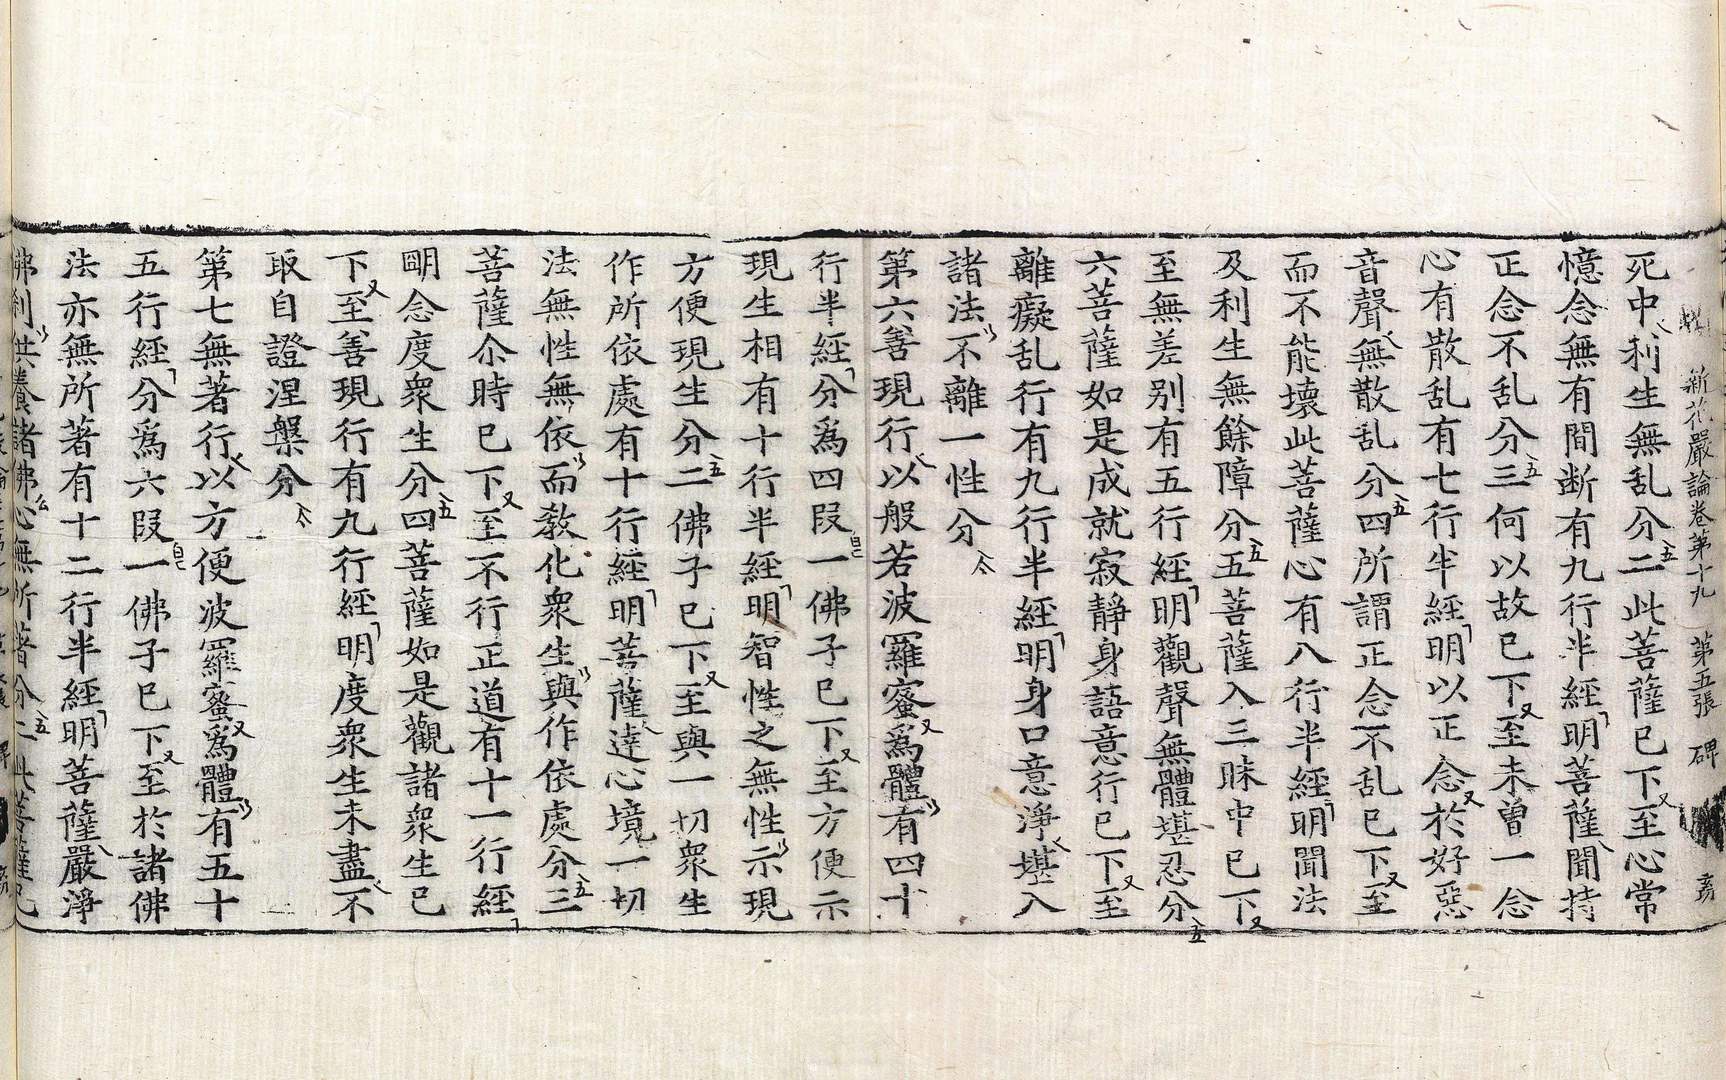 新花嚴論卷第十九 第五張 碑
死中利生無乱分二此菩薩已下至心常
憶念無有間断有九行半經明菩薩聞持
正念不乱分三何以故已下至未曾一念
心有散乱有七行半經明以正念於好惡
音聲無散乱分四所謂正念不乱已下至
而不能壞此菩薩心有八行半經明聞法
及利生無餘障分五菩薩入三昧中已下
至無差别有五行經明觀聲無體堪忍分
六菩薩如是成就寂静身語意行已下至
離癡乱行有九行半經明身口意淨堪入
諸法不離一性分
第六善現行以般若波羅蜜爲體有四十
行半經分爲四段一佛子已下至方便示
現生相有十行半經明智性之無性示現
方便現生分二佛子已下至與一切衆生
作所依處有十行經明菩薩達心境一切
法無性無依而教化衆生與作依處分三
菩薩尒時已下至不行正道有十一行經
明念度衆生分四菩薩如是觀諸衆生已
下至善現行有九行經明度衆生未盡不
取自證涅槃分
第七無著行以方便波羅蜜爲體有五十
五行經分爲六段一佛子已下至於諸佛
法亦無所著有十二行半經明菩薩嚴淨
佛刹供養諸佛心無所著分二此菩薩已